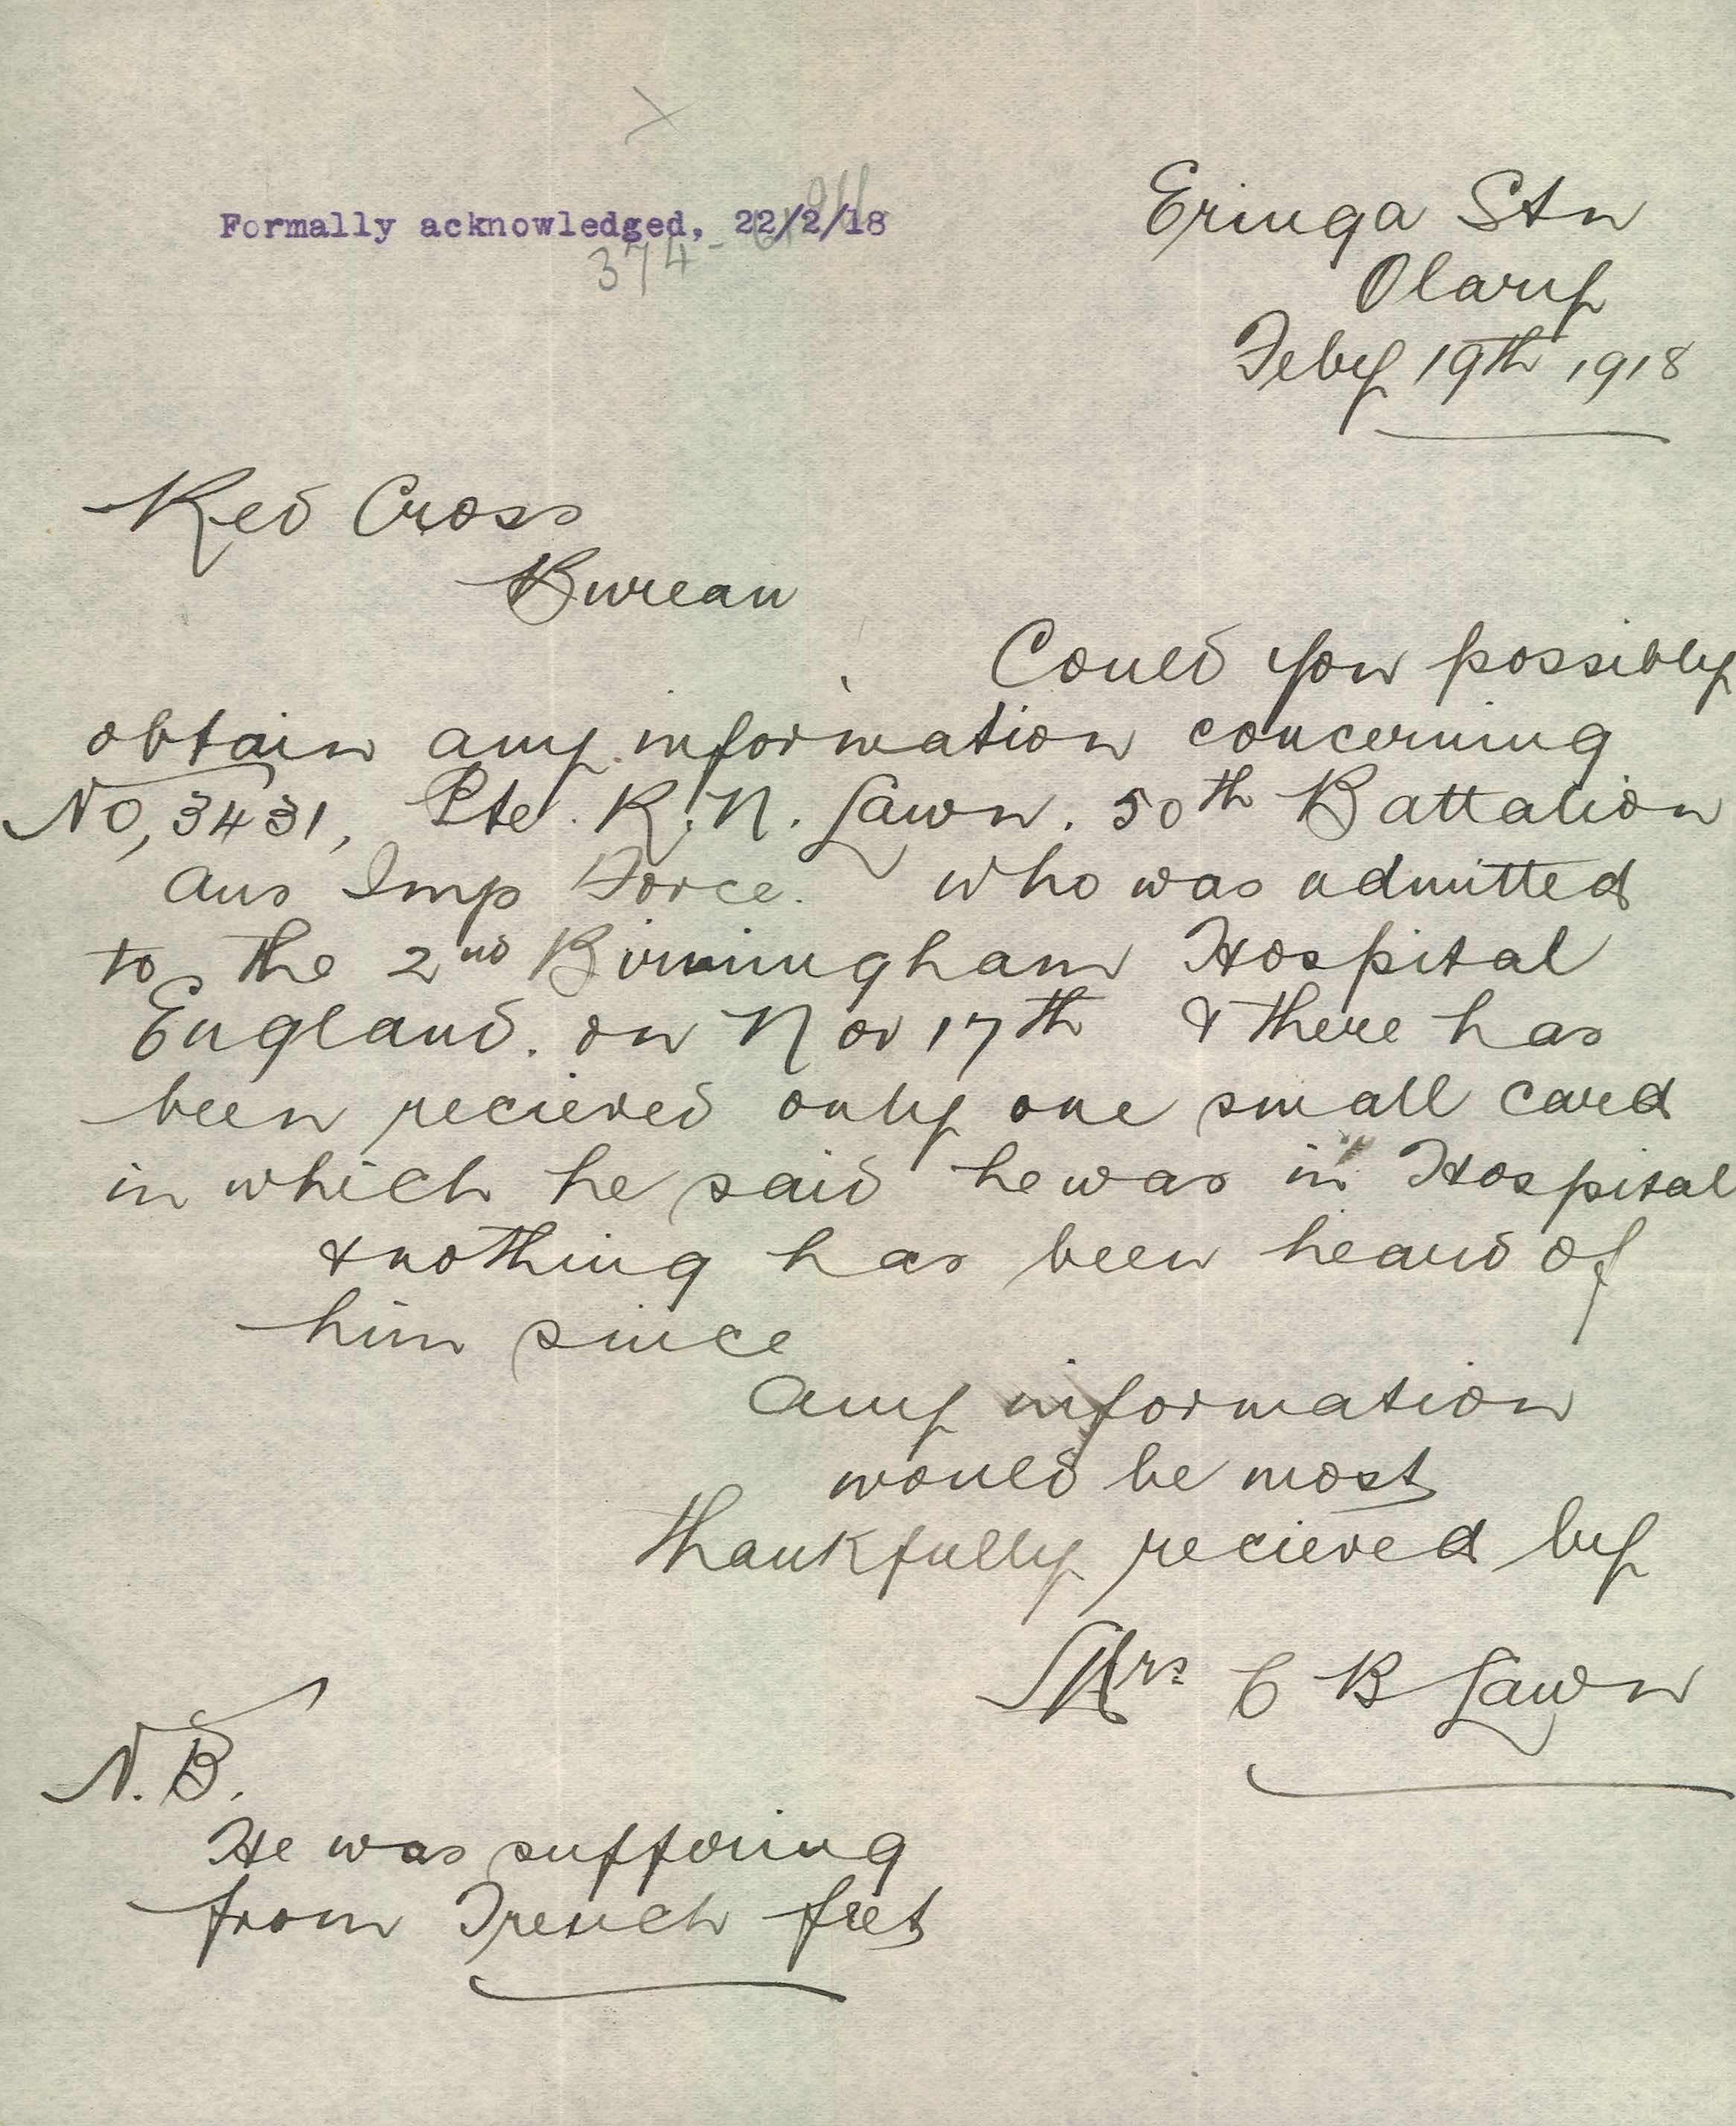 Formally acknowledged, 22/2/18
374-
Eringa Stn
Olary
Feby 19th 1918
Red Cross
Bureau
Could you possibly
obtain any information concerning
No, 3431, Pte. R. N. Lawn. 50th Battalion
Aus Imp Force. who was admitted
to the 2nd Birmingham Hospital
England. on Nov 17th & there has
been recieved only one small card
in which he said he was in Hospital
& nothing has been heard of
him since
Any information
would be most
thankfully recieved by
Mrs C B Lawn
N.B.
He was suffering
from Trench feet